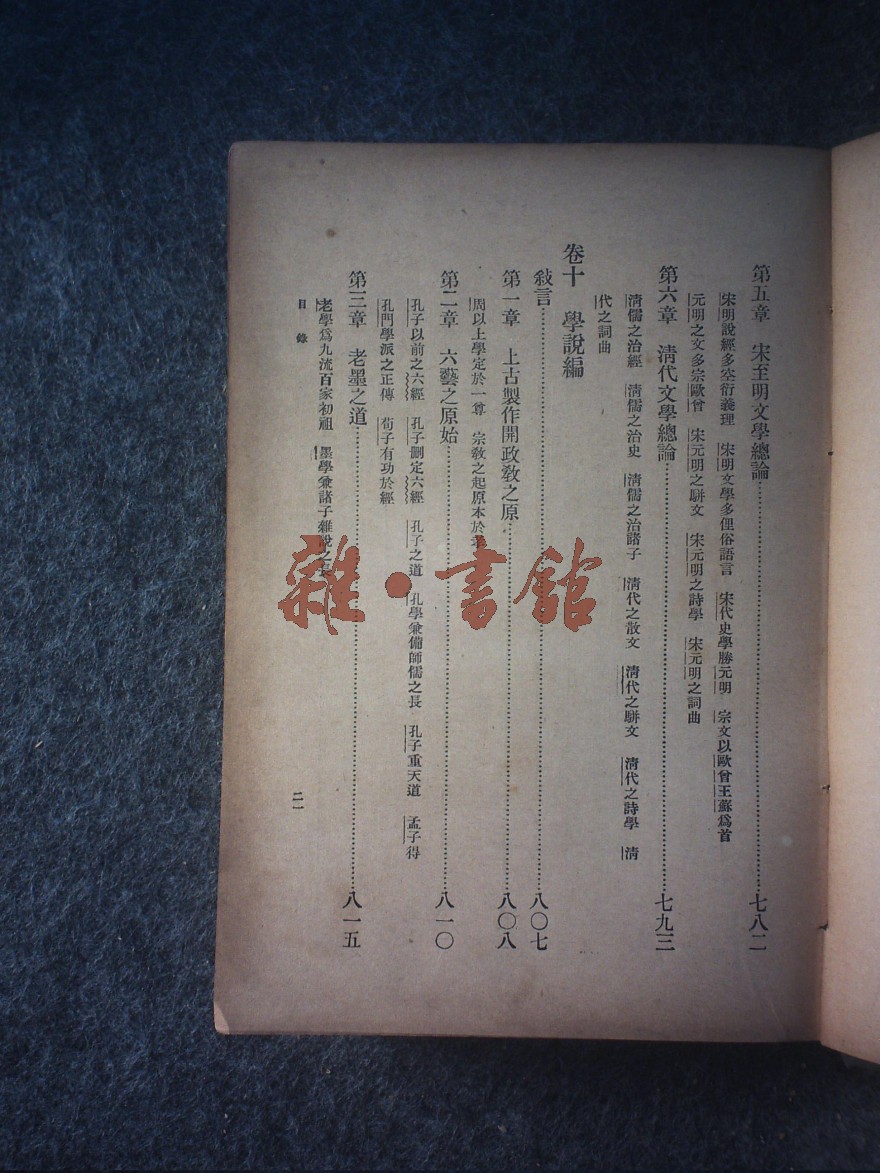 第五章　宋至明文學總論……七八二
宋明說經多空衍義理　宋明文學多俚俗語言　宋代史學勝元明　宗文以歐曾王蘇爲首
元明之文多宗歐曾　宋元明之駢文　宋元明之詩學　宋元明之詞曲
第六章　清代文學總論……七九三
清儒之治經　清儒之治史　清儒之治諸子　清代之散文　清代之駢文　清代之詩學　清
代之詞曲
卷十　學說編
敍言……八〇七
第一章　上古製作開政教之原……八〇八
周以上學定於一尊　宗教之起原本於
第二章　六藝之原始……八一〇
孔子以前之六經　孔子刪定六經　孔子之道　孔學兼備師儒之長　孔子重天道　孟子得
孔門學派之正傳　荀子有功於經
第三章　老墨之道……八一五
老學爲九流百家初祖　墨學兼諸子雜說之長
目錄
二一
雜·書館